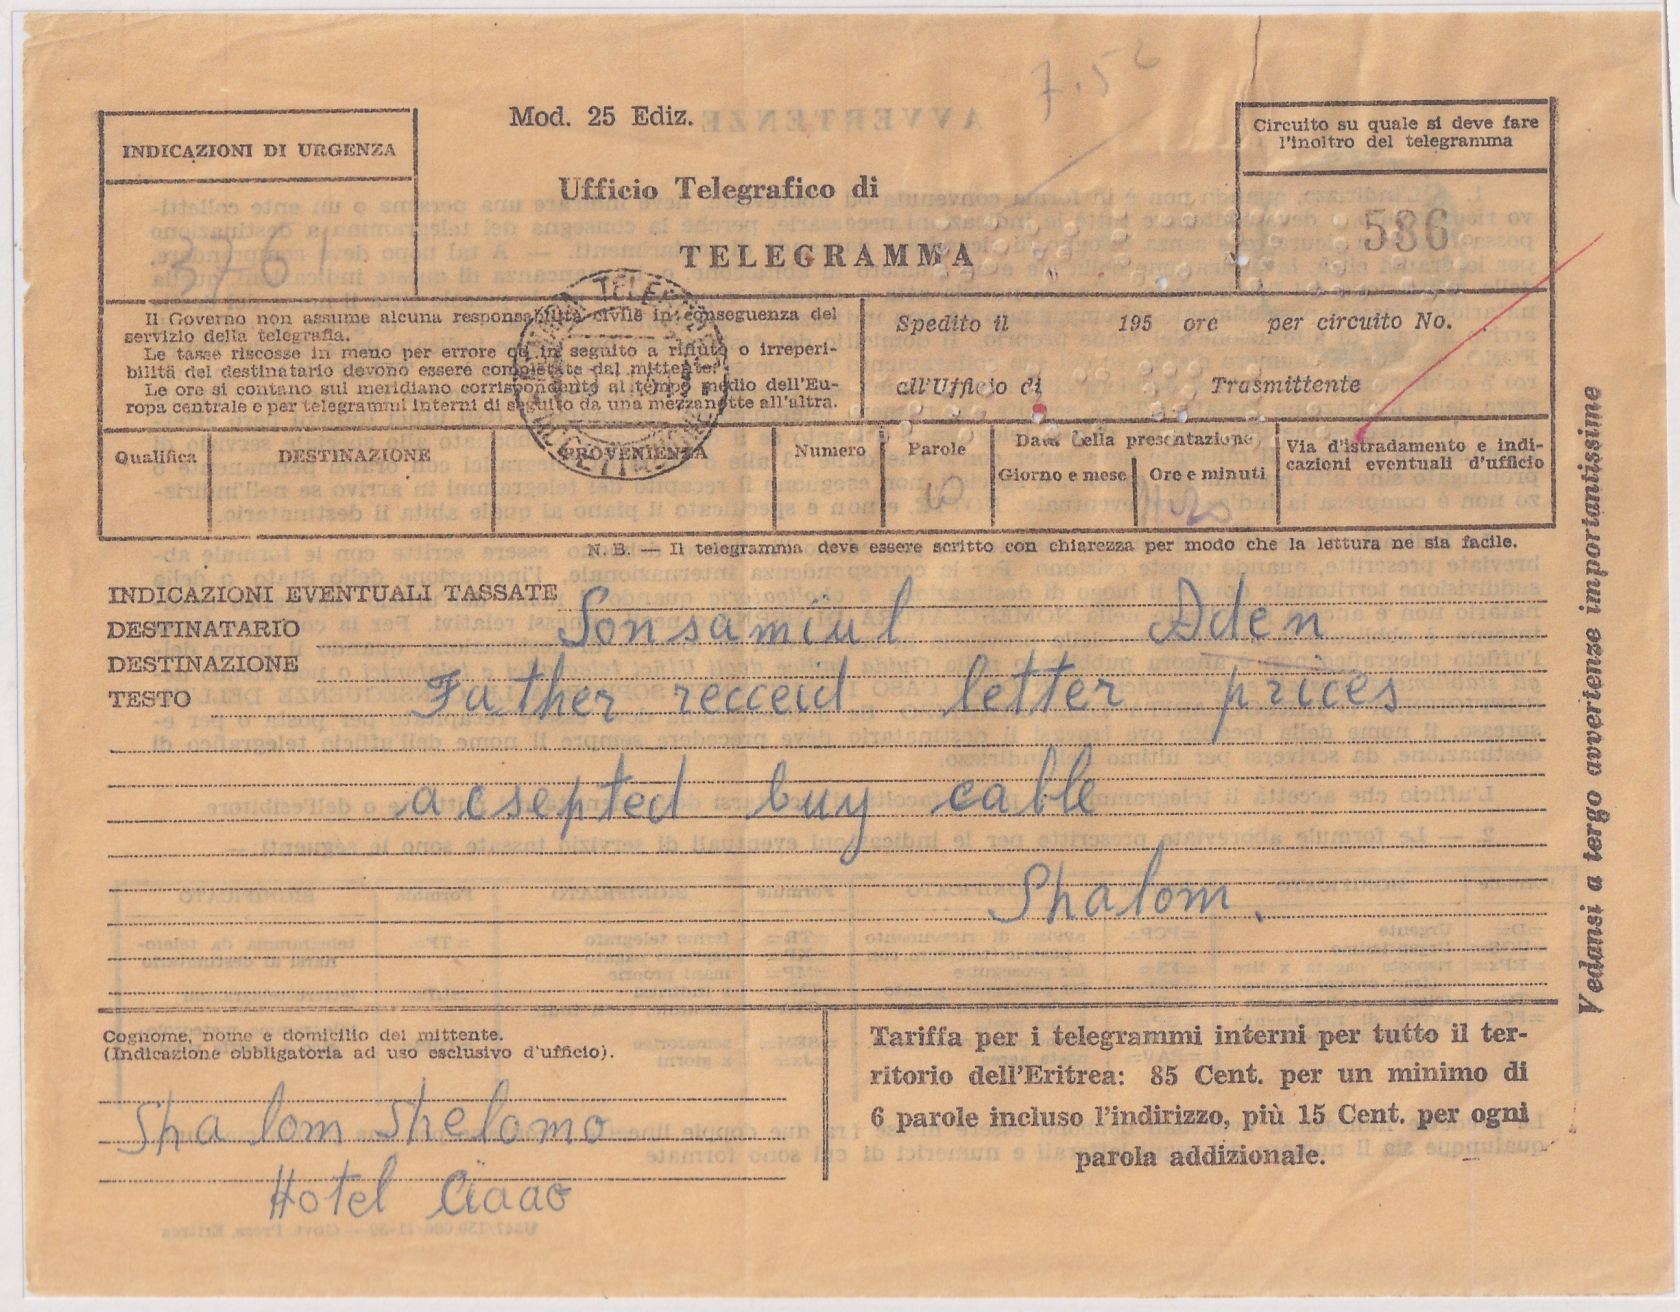 7.56
Mod. 25 Ediz.
INDICAZIONI DI URGENZA
Circuito su quale si deve fare
l'inoltro del telegramma
Ufficio Telegrafico di
3761
536
TELEGRAMMA
Il Governo non assume alcuna responsabilità civile in conseguenza del
servizio della telegrafia.
Le tasse riscosse in meno per errore od in seguito a rifiuto o irreperi-
bilità del destinatario devono essere completate dal mittente.
Le ore si contano sul meridiano corrispondente al tempo medio dell'Eu-
ropa centrale e per telegrammi interni di seguito da una mezzanotte all'altra.
Spedito il 195 ore per circuito No.
all'Ufficio di Trasmittente
Qualifica DESTINAZIONE PROVENIENZA Numero Parole Data della presentazione Via d'istradamento e indi-
cazioni eventuali d'ufficio
Giorno e mese Ore e minuti
N. B. — Il telegramma deve essere scritto con chiarezza per modo che la lettura ne sia facile.
INDICAZIONI EVENTUALI TASSATE
DESTINATARIO Sonsamiul Aden
DESTINAZIONE
TESTO Father recceid letter prices
acsepted buy cable
Shalom.
Vedansi a tergo avvertenze importantissime
Cognome, nome e domicilio del mittente.
(Indicazione obbligatoria ad uso esclusivo d'ufficio).
Shalom Shelomo
Hotel Ciaao
Tariffa per i telegrammi interni per tutto il ter-
ritorio dell'Eritrea: 85 Cent. per un minimo di
6 parole incluso l'indirizzo, più 15 Cent. per ogni
parola addizionale.